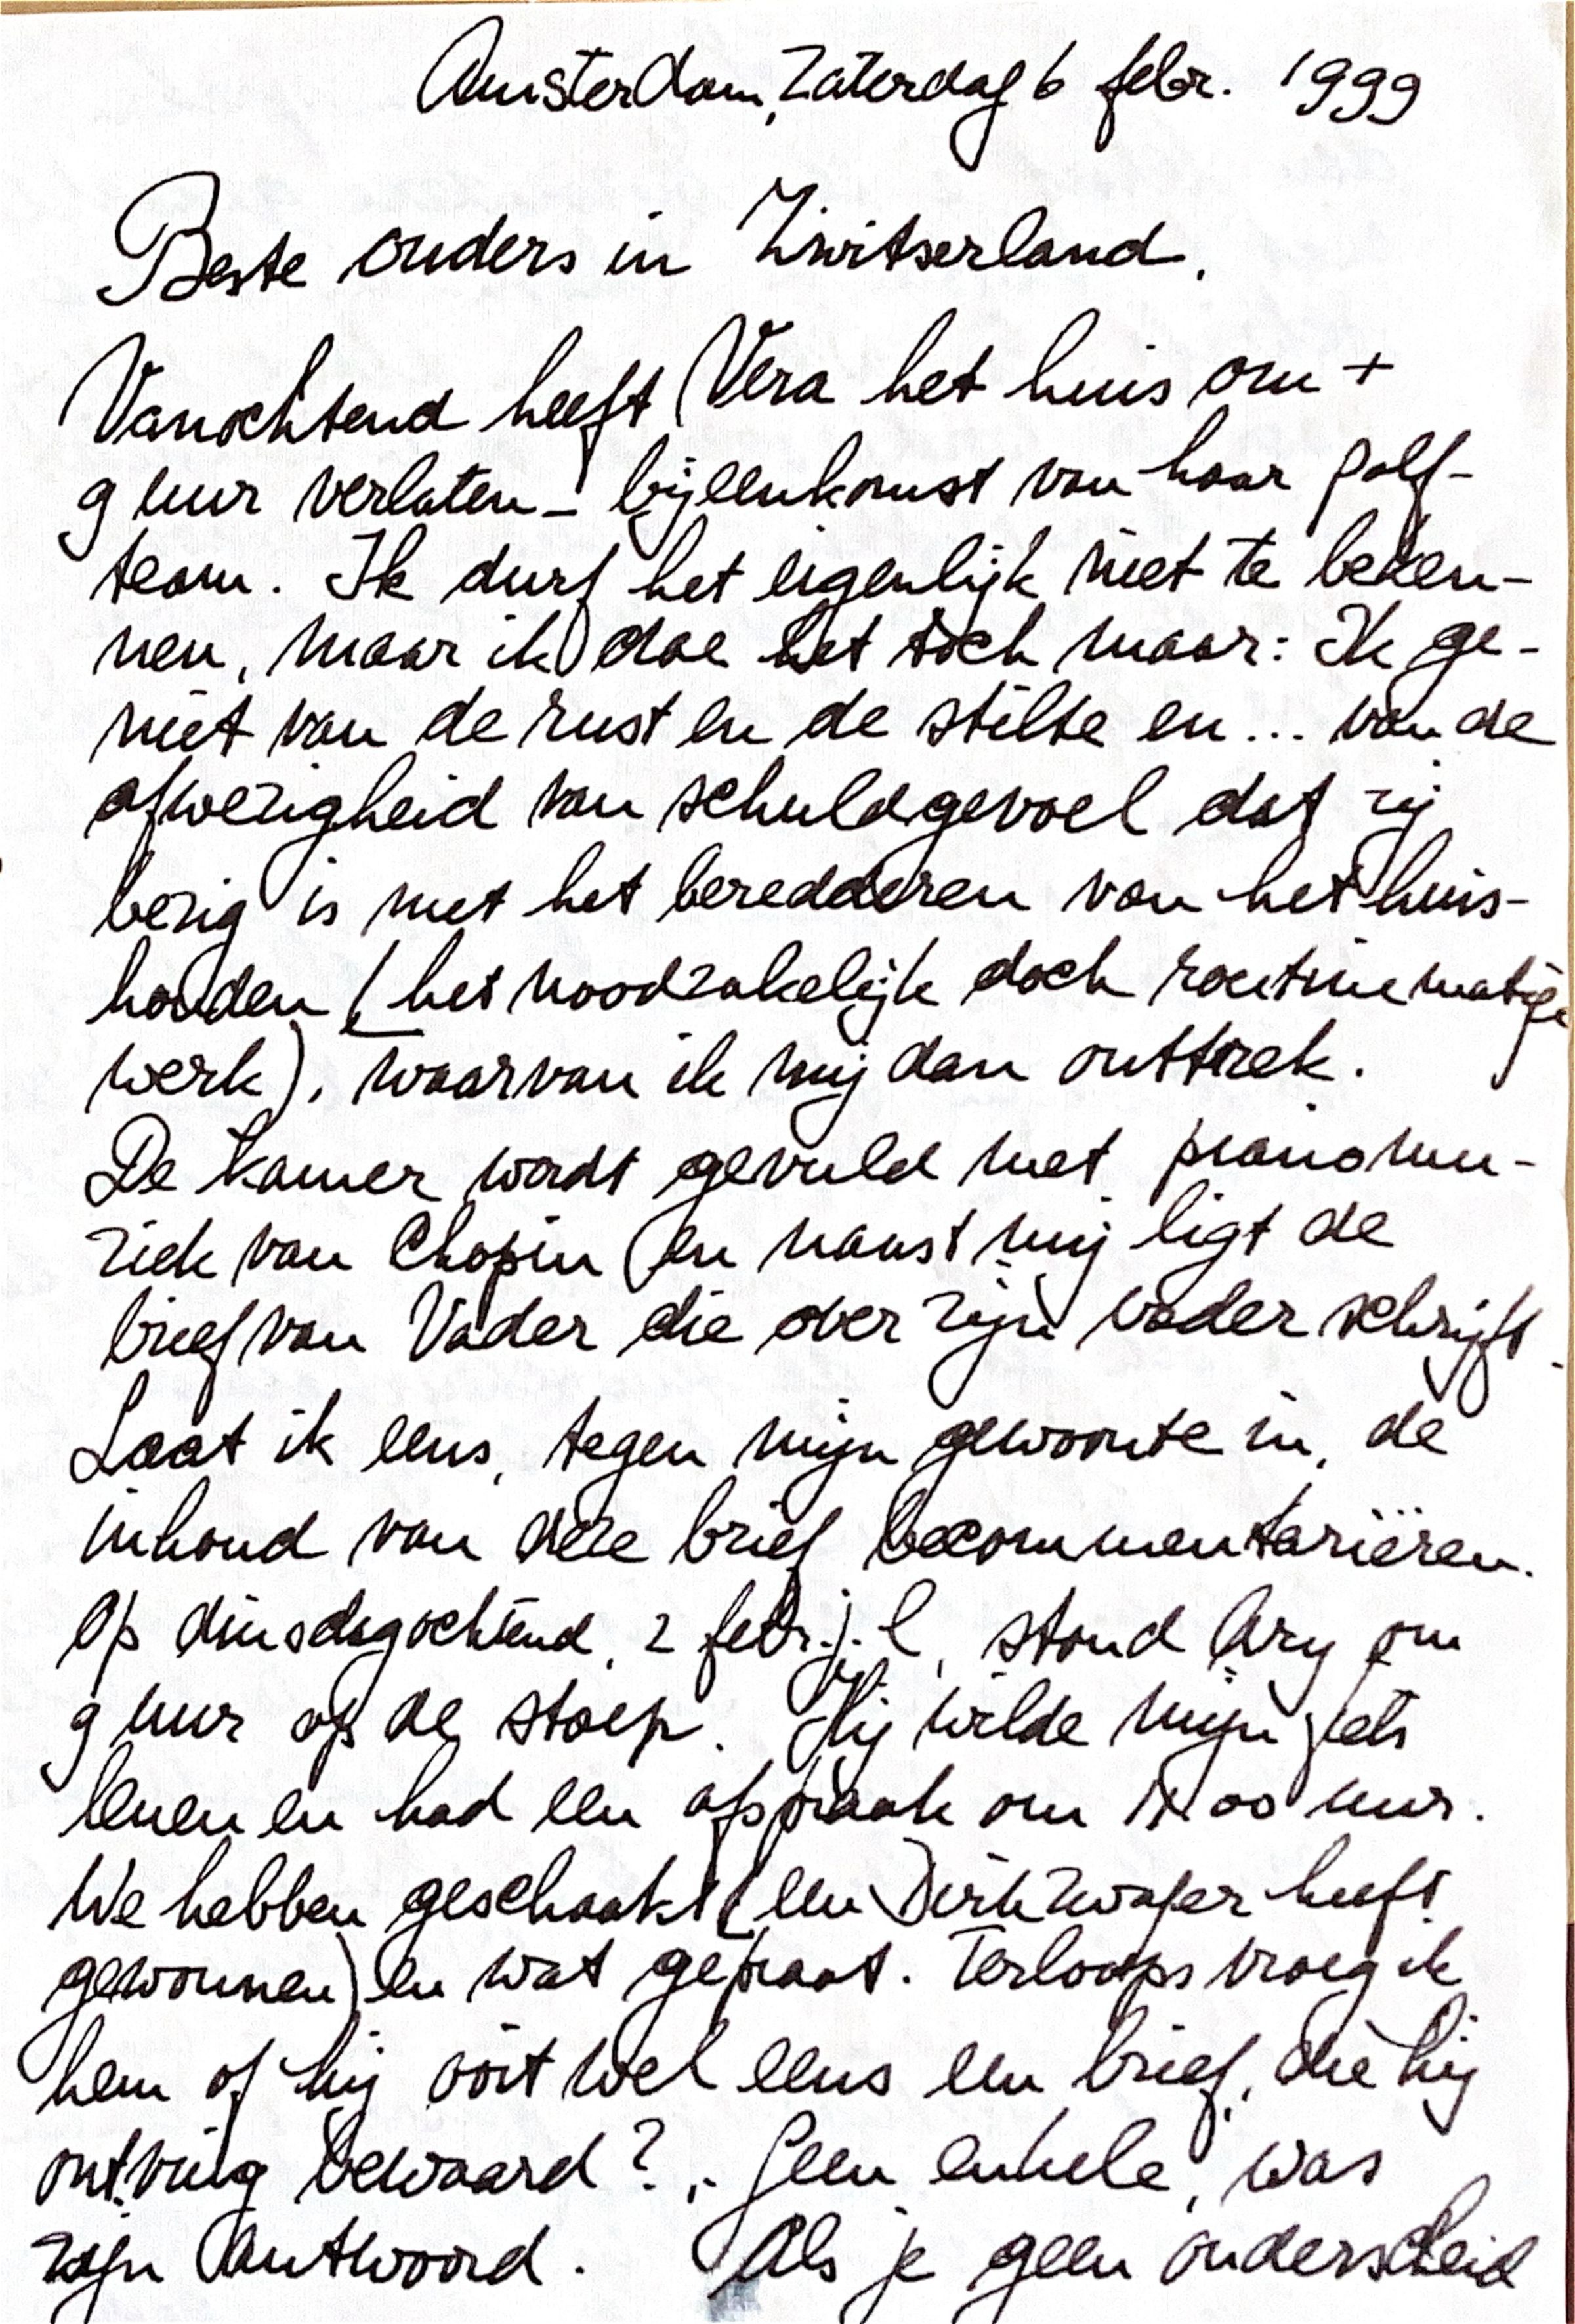 Amsterdam, Zaterdag 6 febr. 1999
Beste ouders in Zwitserland.
Vanochtend heeft Vera het huis om +
9 uur verlaten – bijeenkomst van haar golf-
team. Ik durf het eigenlijk niet te beken-
nen, maar ik doe het toch maar: Ik ge-
niet van de rust en de stilte en... van de
afwezigheid van schuldgevoel dat zij
bezig is met het beredderen van het huis-
houden (het noodzakelijk doch routinematige
werk), waarvan ik mij dan onttrek.
De kamer wordt gevuld met pianomu-
ziek van Chopin en naast mij ligt de
brief van Vader die over zijn vader schrijft.
Laat ik eens, tegen mijn gewoonte in, de
inhoud van deze brief becommentariëren.
Op dinsdagochtend, 2 febr. j.l, stond Ary om
9 uur op de stoep. Hij wilde mijn fiets
lenen en had een afspraak om 11 00 uur.
We hebben geschaakt (een Dirkzwager heeft
gewonnen) en wat gepraat. Terloops vroeg ik
hem of hij ooit wel eens een brief, die hij
ontving bewaard? „Geen enkele, was
zijn antwoord. Als je geen onderscheid